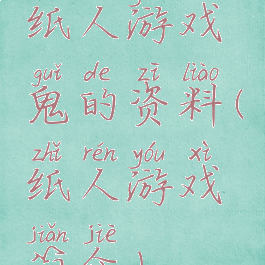 纸人游戏
guǐ de zī liào
鬼的资料(
zhǐ rén yóu xì
纸人游戏
jiǎn jiè
简介)